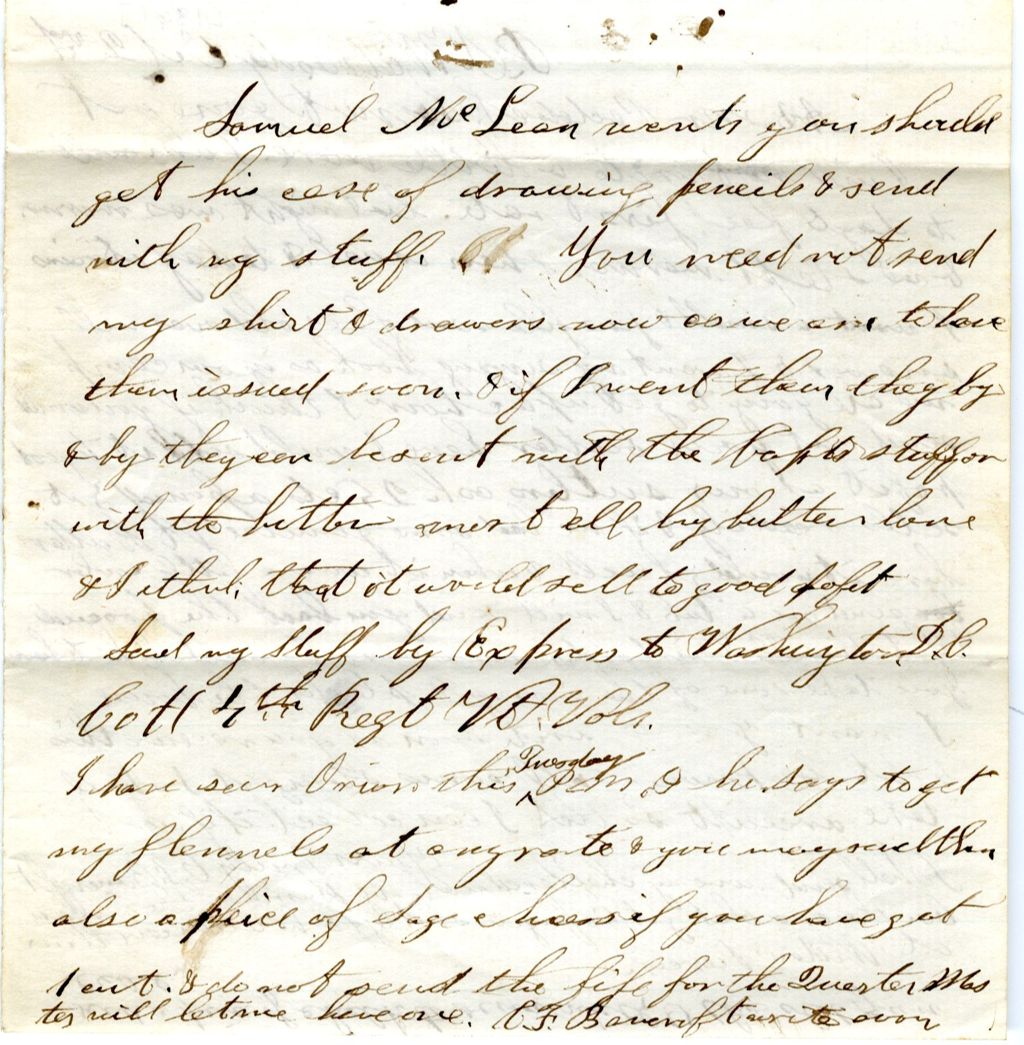 Samuel Mc Lean wants you should
get his case of drawing pencils & send
with my stuff. You need not send
my shirt & drawers now as we are to have
them issued soon. & if I want them they by
& by they can be sent with the Capts stuff or
with the butter most all buy butter here
& I think that it would sell to good pofit
Send my stuff by Express to Washington D.C.
Co H 4th Regt Vt. Vols.
I have seen Orion this Tuesday P.M. & he says to get
my flannels at any rate & you may send them
also a peice of Sage cheese if you have got
1 cut. & do not send the fife for the Quarter Mas
ter will let me have one. C F Bancroft write soon